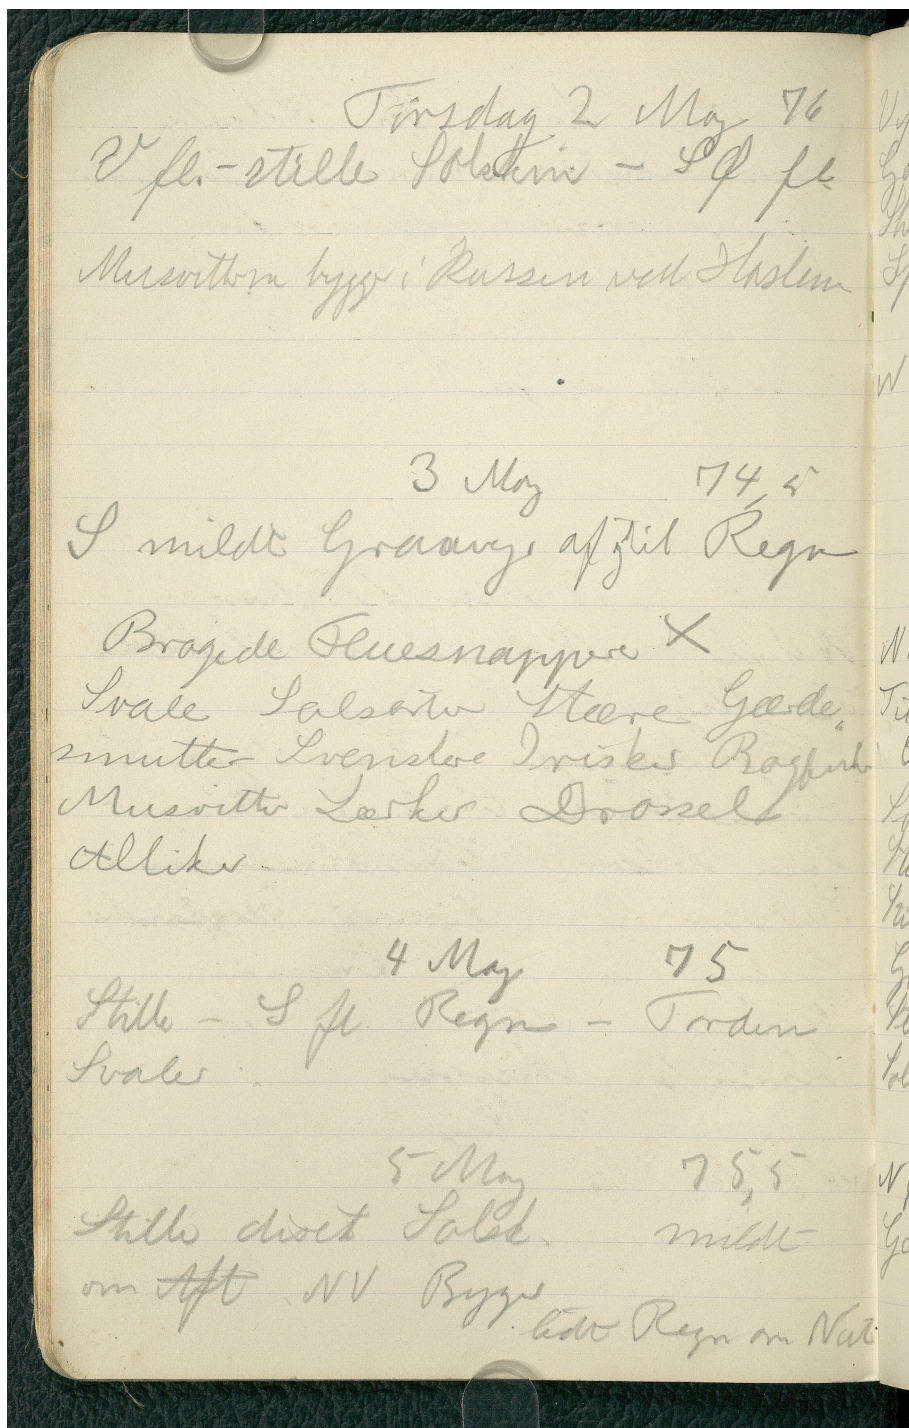 Torsdag 2 May 76
V fl. - stille Solskin - SØ fl.
Musvitterne bygge i Kassen ved Haslem
3 May 74,5
S mildt Graavejr af & til Regn
Brogede Fluesnappere X
Svale Solsorter Stære Gærde„
smutter Svenskere Irisker Bogfinker
Musvitter Lærker Drossel
Alliker
4 May 75
Stille - S fl Regn - Torden
Svaler
5 May 75,5
Stille diset Solsk. mildt
om Aft NV Byger
lidt Regn om Nat